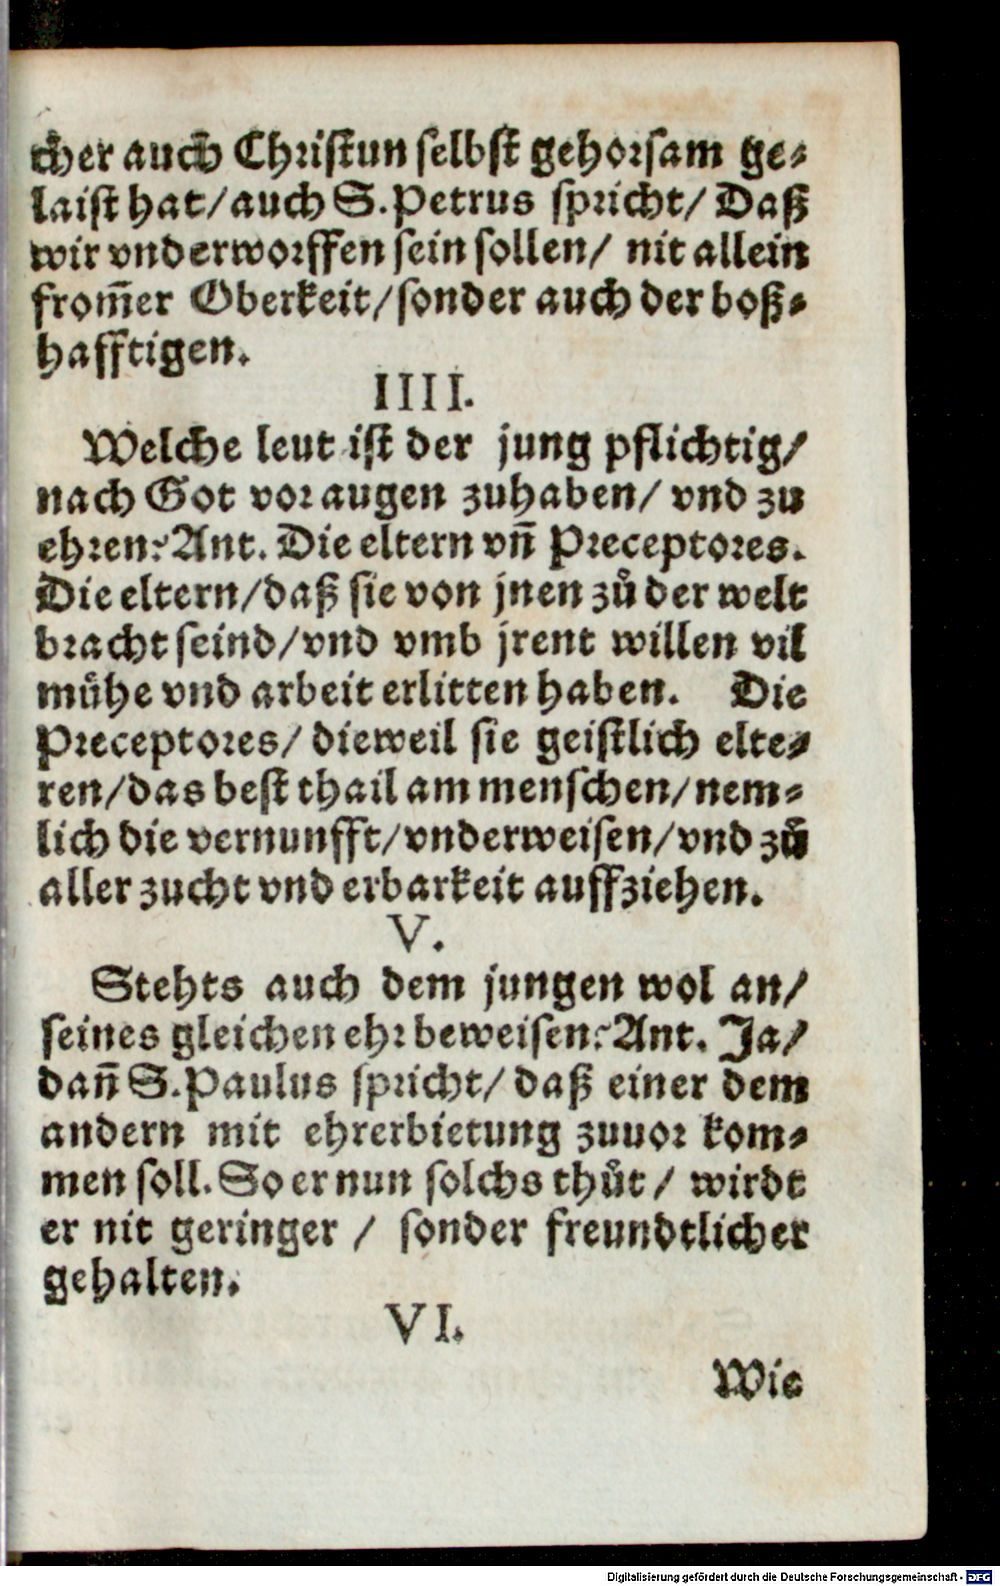 cher auch Christun selbst gehorsam ge-
laist hat/ auch S. Petrus spricht/ Daß
wir vnderworffen sein sollen/ nit allein
from̃er Oberkeit/ sonder auch der boß-
hafftigen.
IIII.
Welche leut ist der jung pflichtig/
nach Got vor augen zuhaben/ vnd zu
ehren? Ant. Die eltern vñ Preceptores.
Die eltern/ daß sie von jnen zů der welt
bracht seind/ vnd vmb jrent willen vil
mühe vnd arbeit erlitten haben. Die
Preceptores/ dieweil sie geistlich elte-
ren/ das best thail am menschen/ nem-
lich die vernunfft/ vnderweisen/ vnd zů
aller zucht vnd erbarkeit auffziehen.
V.
Stehts auch dem jungen wol an/
seines gleichen ehr beweisen? Ant. Ja/
dañ S. Paulus spricht/ daß einer dem
andern mit ehrerbietung zuuor kom-
men soll. So er nun solchs thůt/ wirdt
er nit geringer/ sonder freundtlicher
gehalten.
VI.
Wie
Digitalisierung gefördert durch die Deutsche Forschungsgemeinschaft - DFG